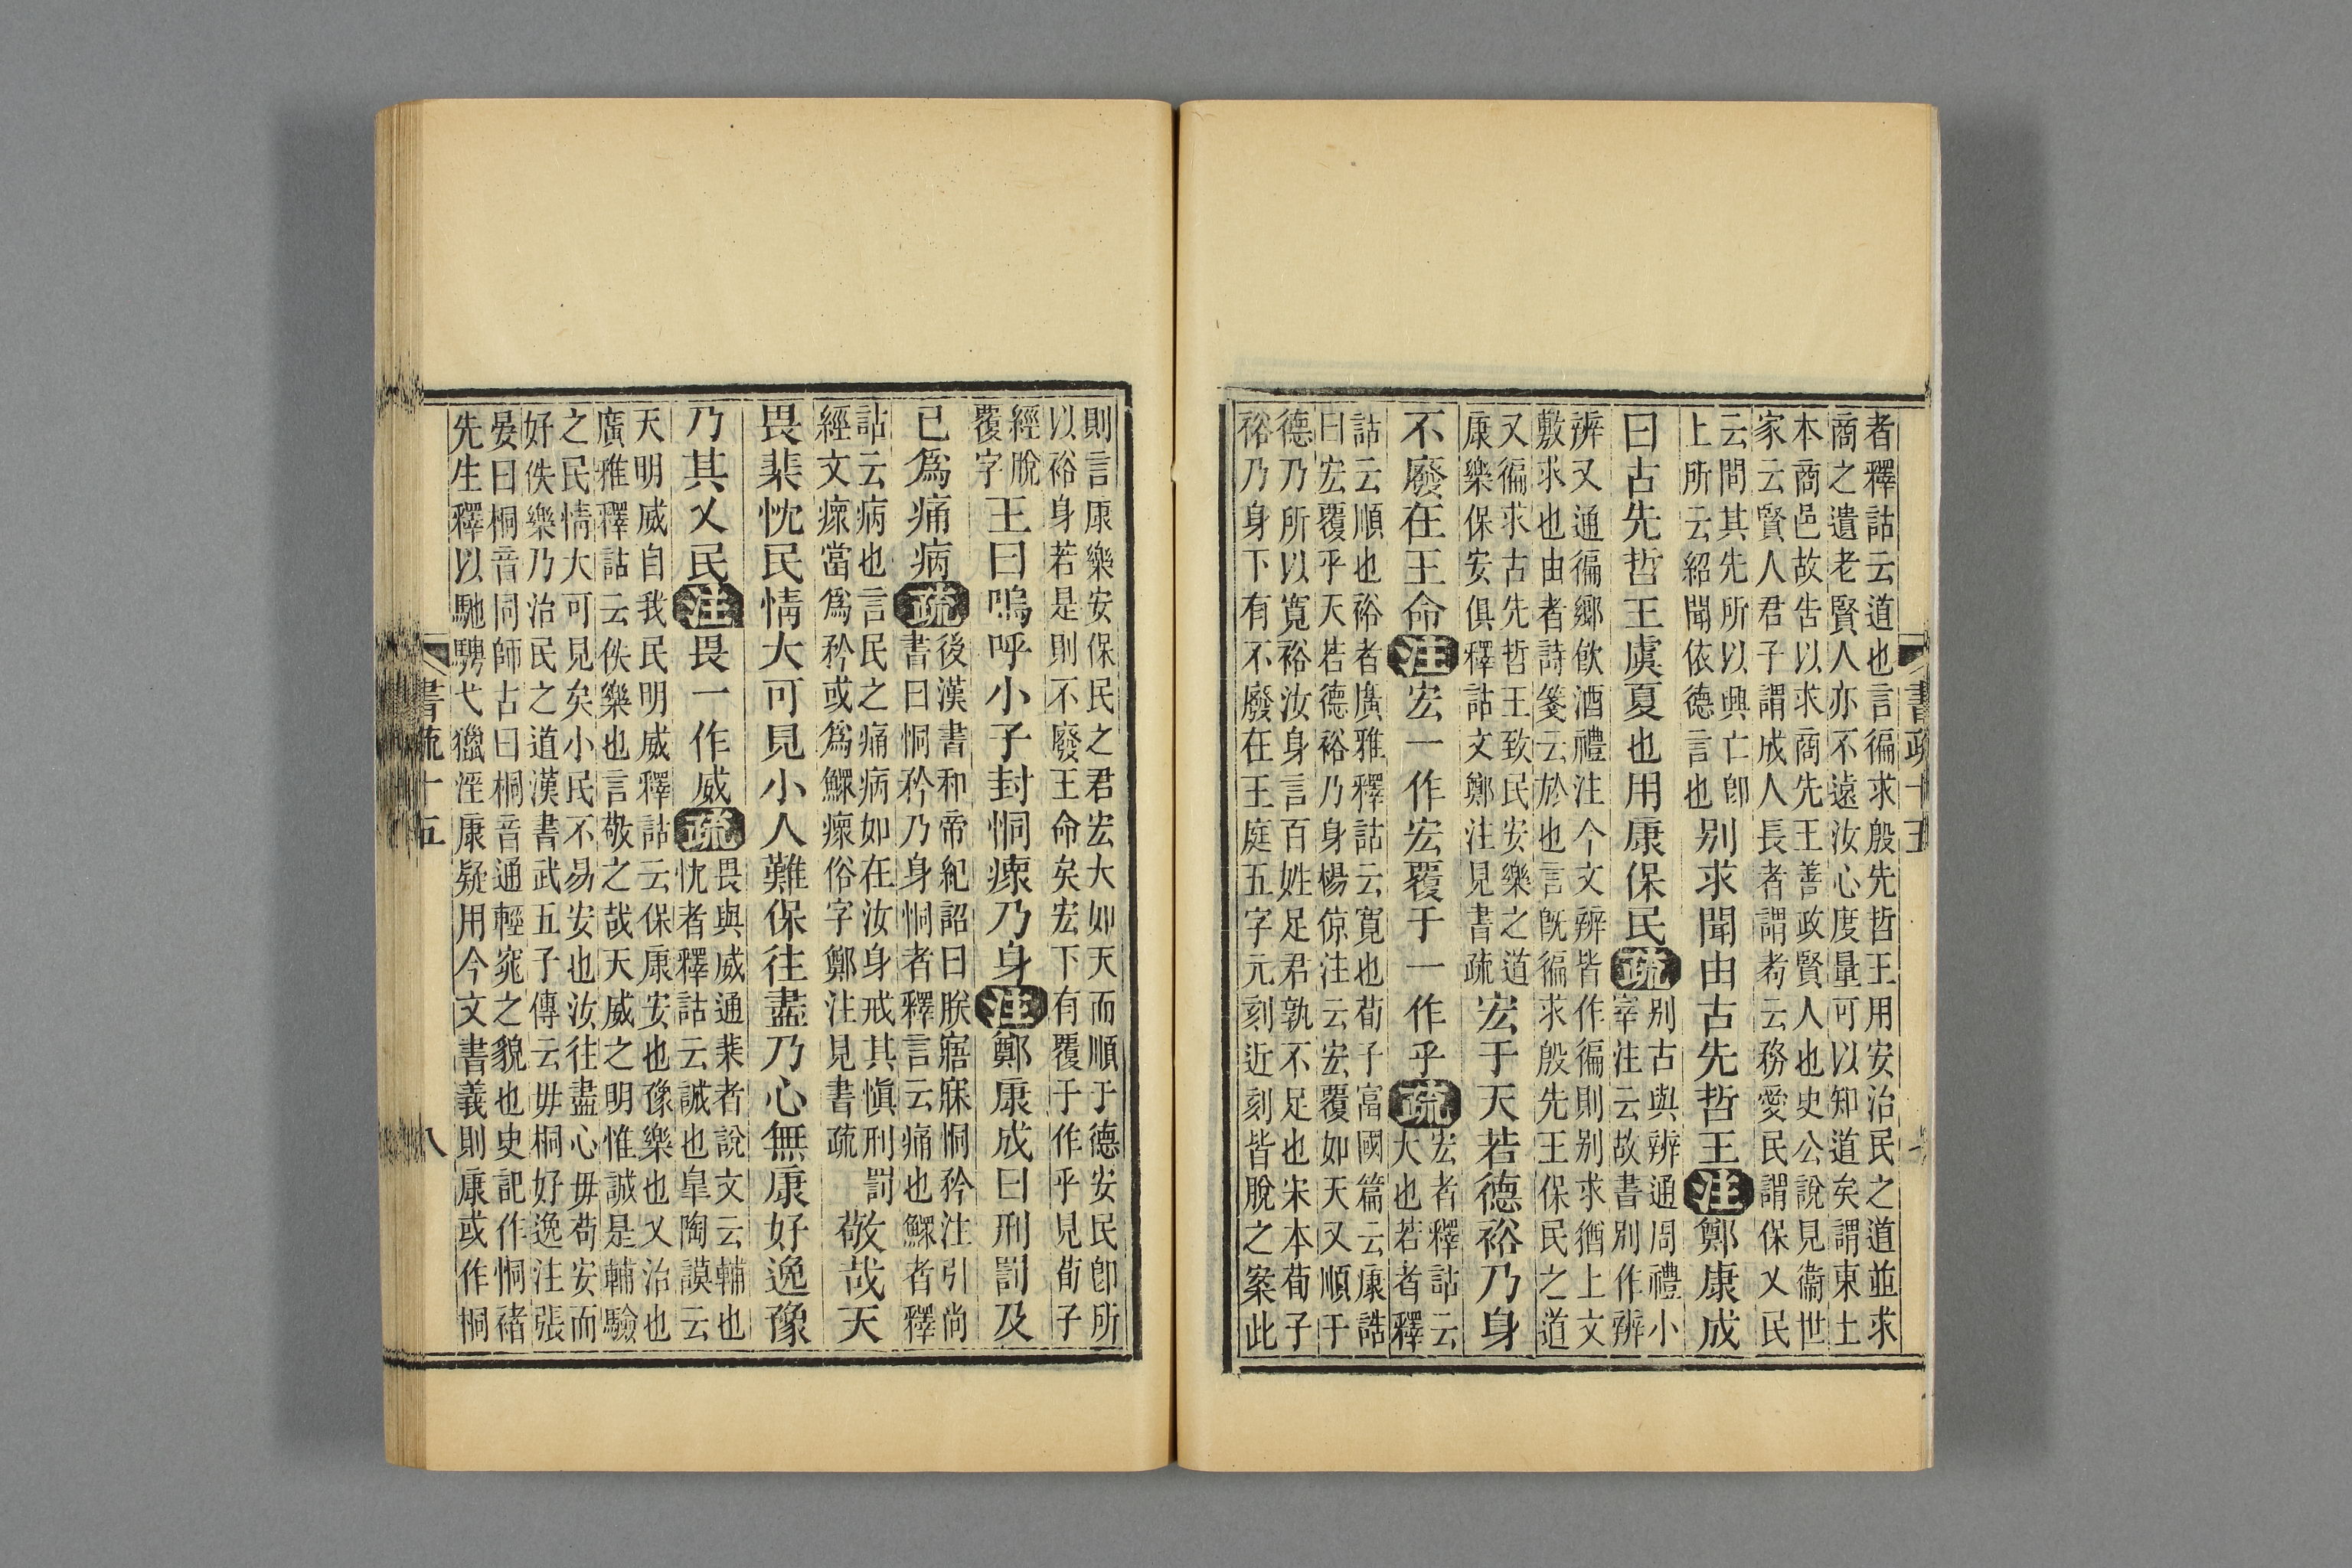 書疏十五
七
者釋詁云道也言徧求殷先哲王用安治民之道並求
商之遺老賢人亦不遠汝心度量可以知道矣謂東土
本商邑故吿以求商先王善政賢人也史公說見衞世
家云賢人君子謂成人長者謂耇云務愛民謂保乂民
云問其先所以興亡卽
上所云紹聞依德言也
别求聞由古先哲王注鄭康成
曰古先哲王虞夏也用康保民疏
别古與辨通周禮小
宰注云故書别作辨
辨又通徧鄕飮酒禮注今文辨皆作徧則别求猶上文
敷求也由者詩箋云於也言旣徧求殷先王保民之道
又徧求古先哲王致民安樂之道
康樂保安俱釋詁文鄭注見書疏
宏于天若德裕乃身
不廢在王命注宏一作宏覆于一作乎疏
宏者釋詁云
大也若者釋
詁云順也裕者廣雅釋詁云寬也荀子富國篇云康誥
曰宏覆乎天若德裕乃身楊倞注云宏覆如天又順于
德乃所以寬裕汝身言百姓足君孰不足也宋本荀子
裕乃身下有不廢在王庭五字元刻近刻皆脫之案此
則言康樂安保民之君宏大如天而順于德安民卽所
以裕身若是則不廢王命矣宏下有覆于作乎見荀子
經脫
覆字
王曰嗚呼小子封恫瘝乃身注鄭康成曰刑罰及
已爲痛病疏
後漢書和帝紀詔曰朕寤寐恫矜注引尚
書曰恫矜乃身恫者釋言云痛也鰥者釋
詁云病也言民之痛病如在汝身戒其愼刑罰
經文瘝當爲矜或爲鰥瘝俗字鄭注見書疏
敬哉天
畏棐忱民情大可見小人難保往盡乃心無康好逸豫
乃其乂民注畏一作威疏
畏與威通棐者說文云輔也
忱者釋詁云誠也皐陶謨云
天明威自我民明威釋詁云保康安也豫樂也乂治也
廣雅釋詁云佚樂也言敬之哉天威之明惟誠是輔驗
之民情大可見矣小民不易安也汝往盡心毋苟安而
好佚樂乃治民之道漢書武五子傳云毋桐好逸注張
晏曰桐音同師古曰桐音通輕窕之貌也史記作恫褚
先生釋以馳騁弋獵淫康疑用今文書義則康或作桐
書疏十五
八